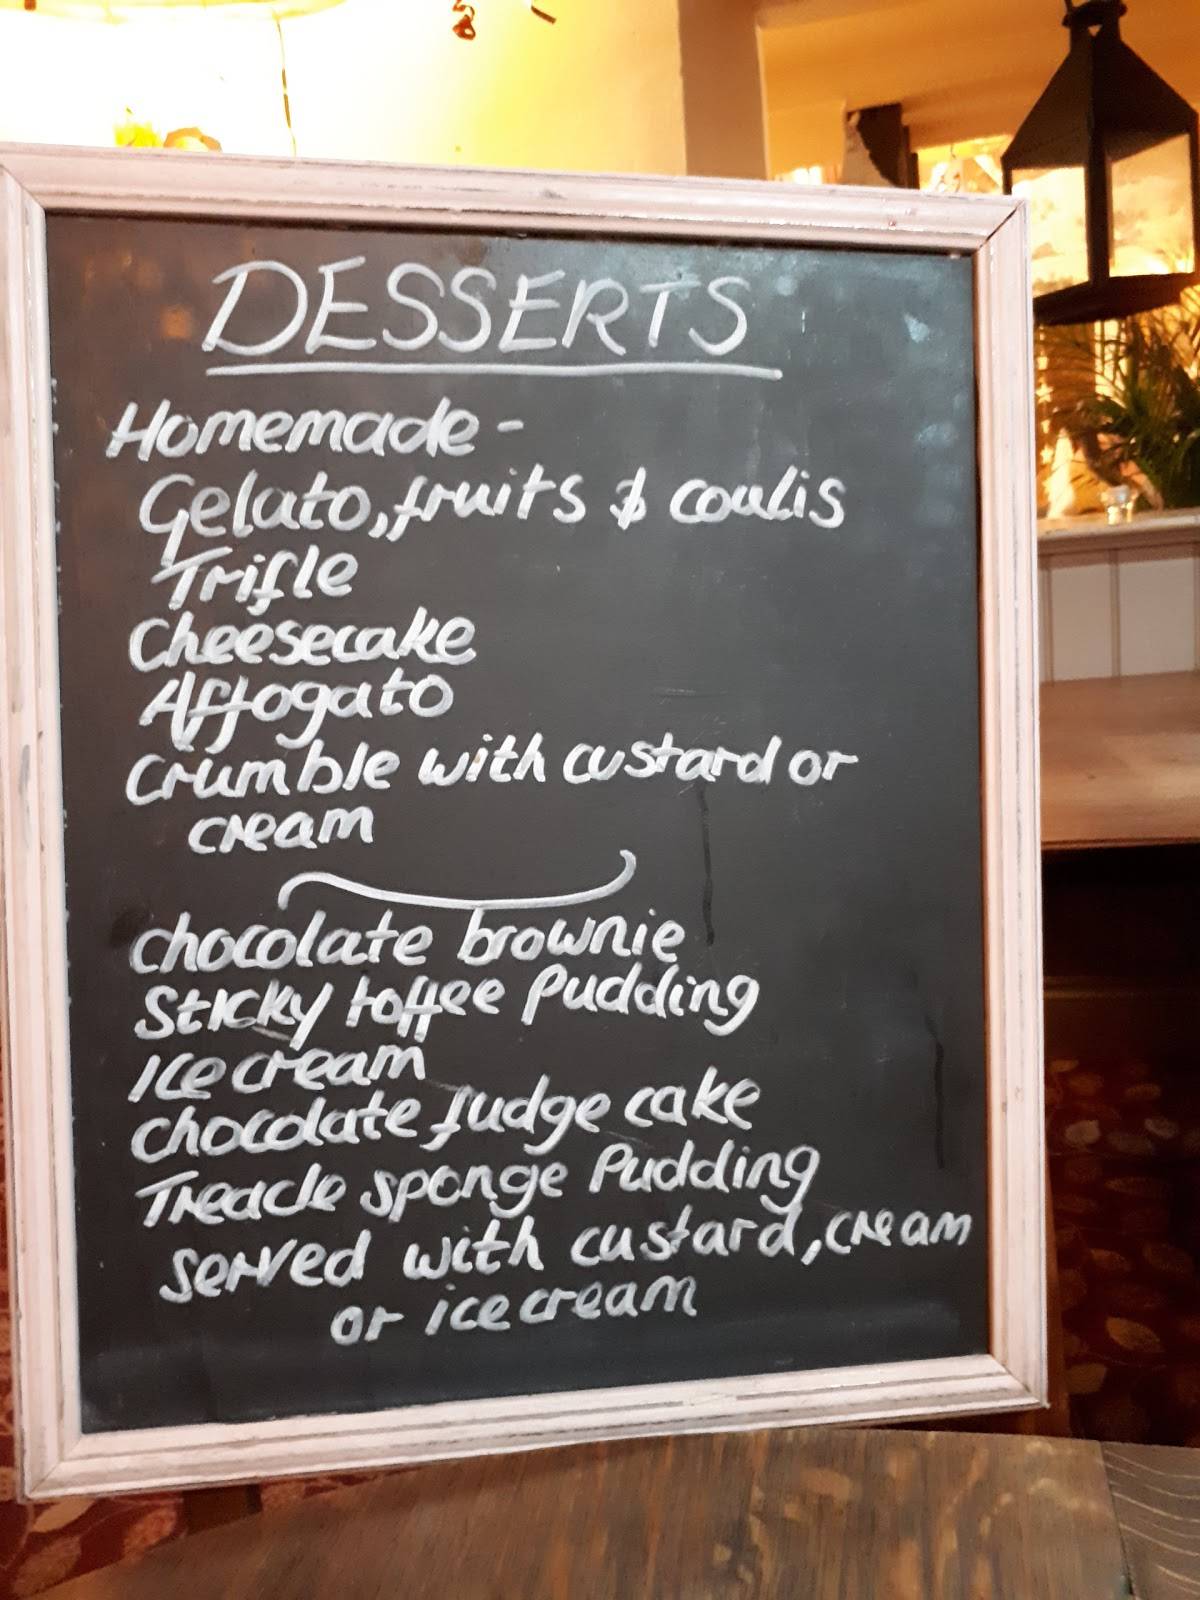 DESSERTS
Homemade -
Gelato, fruits & coulis
Trifle
Cheesecake
Affogato
Crumble with custard or
cream
chocolate brownie
Sticky toffee Pudding
Ice cream
chocolate fudge cake
Treacle sponge Pudding
served with custard, cream
or ice cream